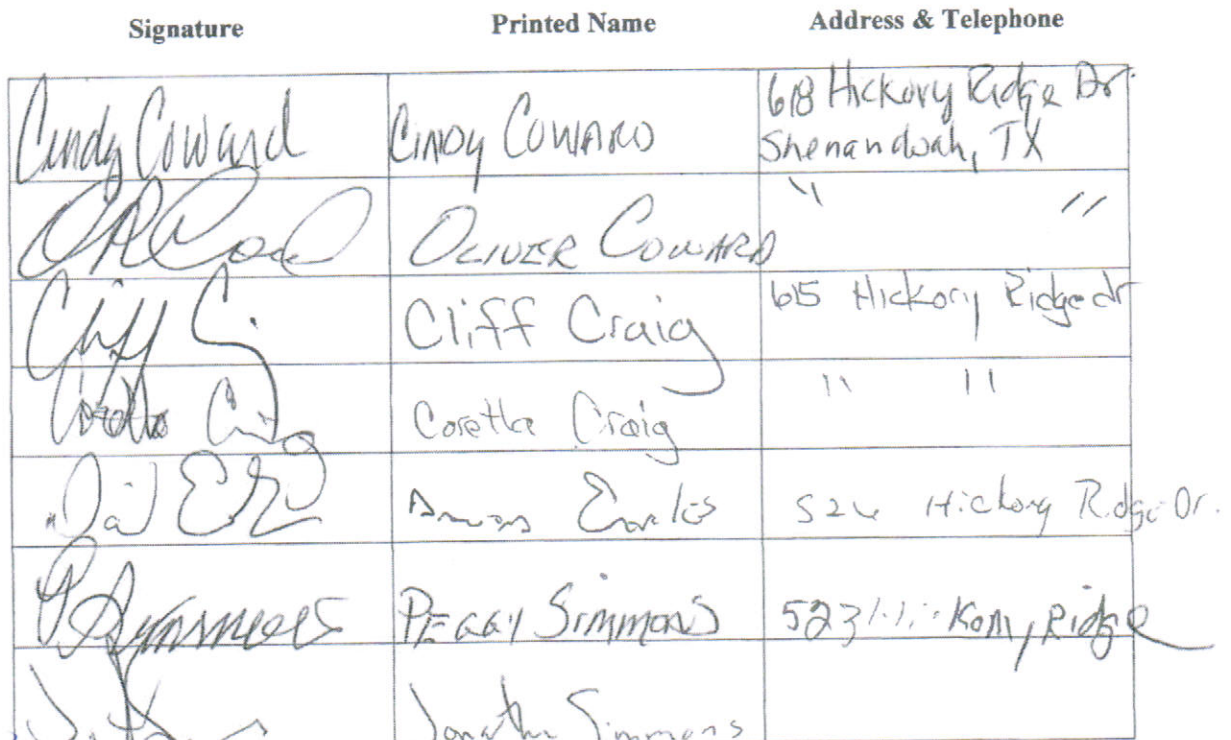 Signature Printed Name Address & Telephone
Cindy Coward CINDY COWARD 618 Hickory Ridge Dr.
Shenandoah, TX
OLIVER COWARD " "
Cliff C. Cliff Craig 615 Hickory Ridge dr
Coretta Craig Coretta Craig " "
Earles 526 Hickory Ridge Dr.
PSimmons PEGGY SIMMONS 523 Hickory Ridge
Jonathan Simmons